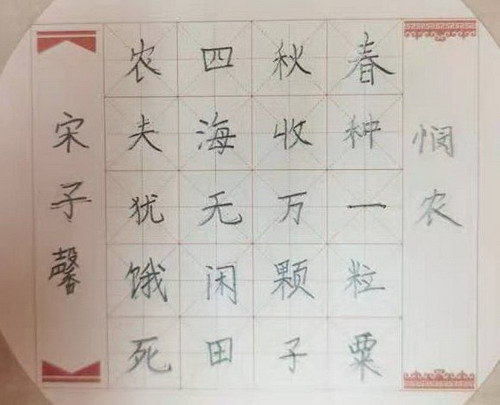 悯农
春种一粒粟
秋收万颗子
四海无闲田
农夫犹饿死
宋子馨